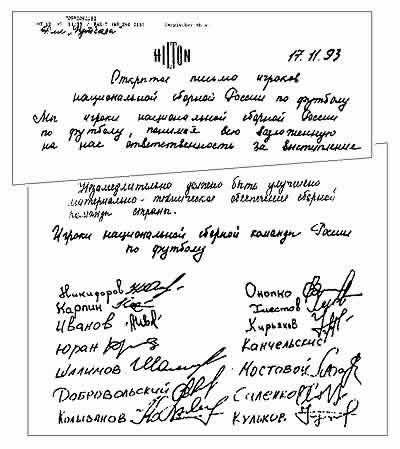 HILTON
17.11.93
Открытое письмо игроков
национальной сборной России по футболу
Мы игроки национальной сборной России
по футболу, понимая всю возложенную
на нас ответственность за выступление
Незамедлительно должно быть улучшено
материально-техническое обеспечение сборной
команды страны.
Игроки национальной сборной команды России
по футболу
Никифоров Онопко
Карпин Хлестов
Иванов Кирьяков
Юран Канчельскис
Шалимов Мостовой
Добровольский Саленко
Колыванов Кульков